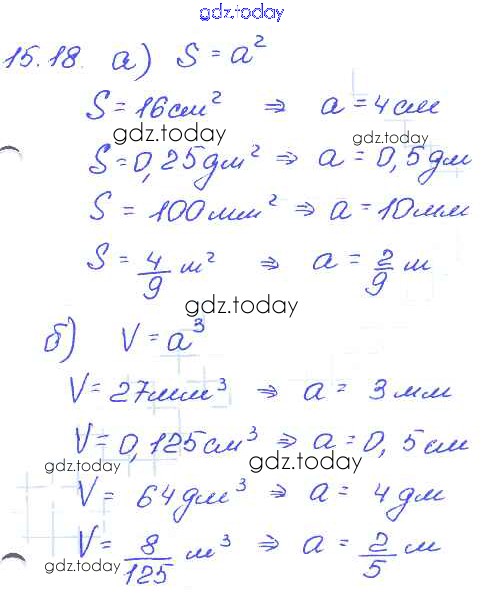 gdz.today
15.18. а) S = a²
S = 16 см² ⇒ a = 4 см
gdz.today gdz.today
S = 0,25 дм² ⇒ a = 0,5 дм
S = 100 мм² ⇒ a = 10 мм
S = 4/9 м² ⇒ a = 2/9 м
gdz.today
б) V = a³
V = 27 мм³ ⇒ a = 3 мм
V = 0,125 см³ ⇒ a = 0,5 см
gdz.today gdz.today
V = 64 дм³ ⇒ a = 4 дм
V = 8/125 м³ ⇒ a = 2/5 м
gdz.today gdz.today